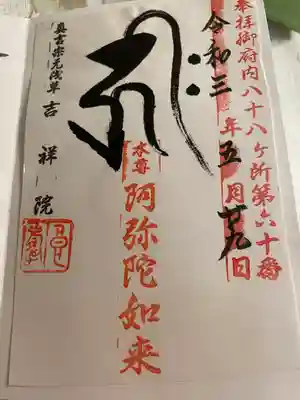 奉拝御府内八十八ヶ所第六十番
令和三年五月廿九日
本尊
阿弥陀如来
真言宗元浅草
吉祥院